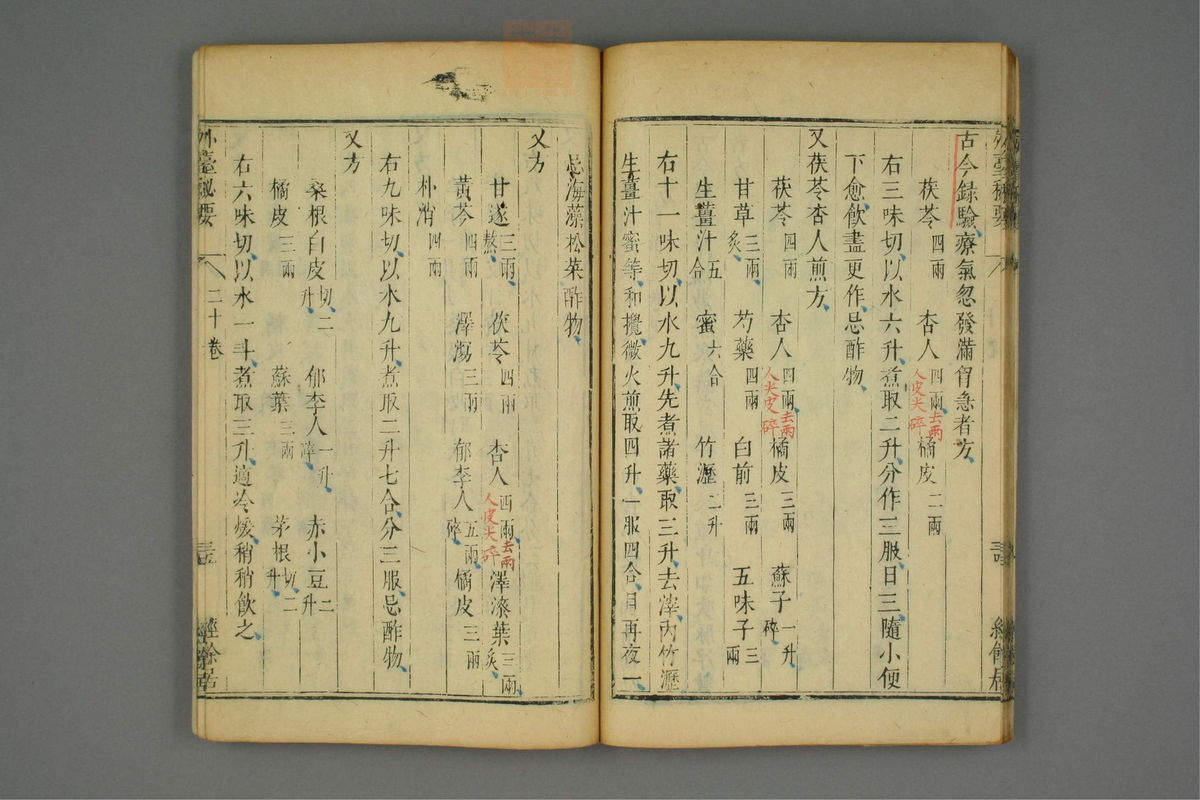 古今錄驗療氣忽發滿胷急者方
茯苓四兩 杏人四兩去兩人皮尖碎 橘皮二兩
右三味切以水六升煮取二升分作三服日三隨小便
下愈飮盡更作忌酢物
又茯苓杏人煎方
茯苓四兩 杏人四兩去兩人尖皮碎 橘皮三兩 蘇子一升碎
甘草三兩炙 芍藥四兩 白前三兩 五味子三兩
生薑汁五合 蜜六合 竹瀝二升
右十一味切以水九升先煮諸藥取三升去滓內竹瀝
生薑汁蜜等和攪微火煎取四升一服四合日再夜一
忌海藻松菜酢物
又方
甘遂三兩熬 茯苓四兩 杏人四兩去兩人皮尖碎 澤漆葉三兩炙
黃芩四兩 澤瀉三兩 郁李人五兩碎 橘皮三兩
朴消四兩
右九味切以水九升煮取二升七合分三服忌酢物
又方
桑根白皮切二升 郁李人一升碎 赤小豆二升
橘皮三兩 蘇葉三兩 茅根切二升
右六味切以水一斗煮取三升適冷煖稍稍飮之
外臺秘要 二十卷 經餘居